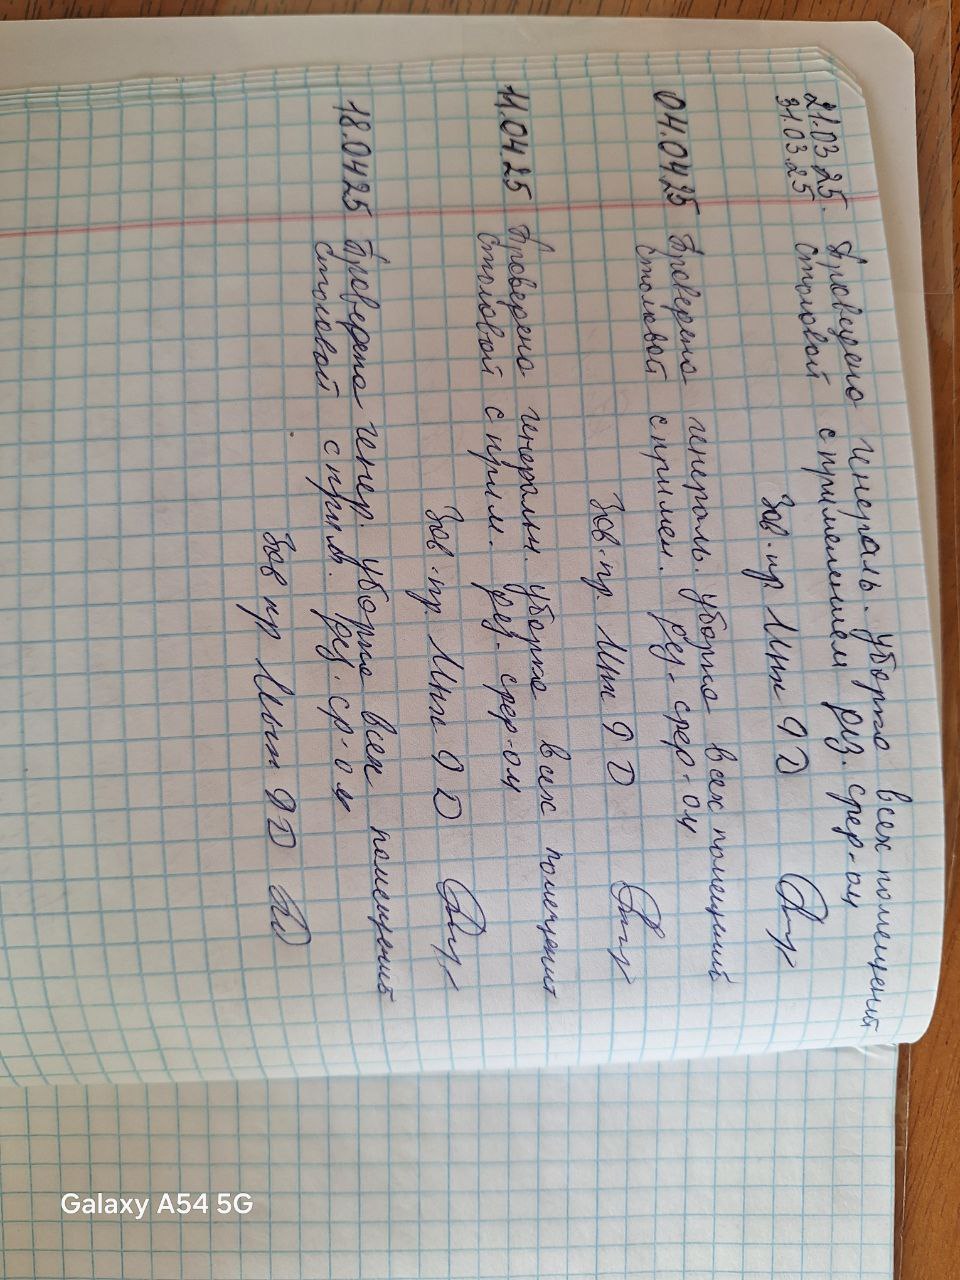 21.03.25. Проведено генераль. уборка всех помещений
31.03.25 столовой с применением дез. сред-ом
Зав. пр.
04.04.25 Проверена генераль. уборка всех помещений
столовой с примен. дез. сред-ом
Зав. пр.
11.04.25 Проверена генеральн. уборка всех помещений
столовой с прим. дез. сред-ом
Зав. пр.
18.04.25 Проверена генер. уборка всех помещений
столовой с прим. дез. ср-ом
Зав пр
Galaxy A54 5G